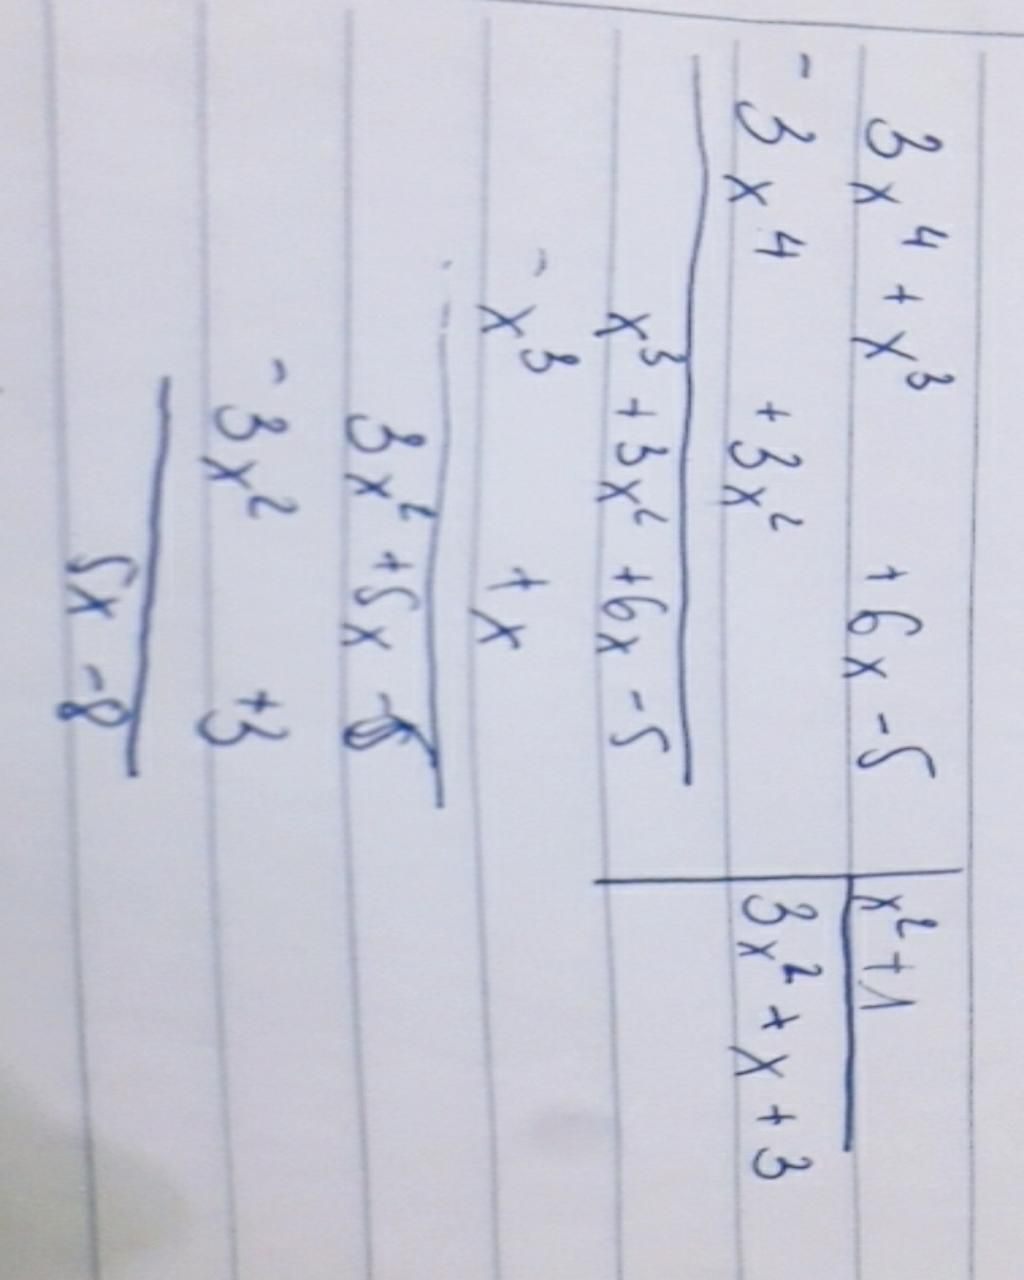 3x⁴ + x³ + 6x - 5 | x² + 1
- 3x⁴ + 3x² | 3x² + x + 3
x³ + 3x² + 6x - 5
- x³ + x
3x² + 5x
- 3x² + 3
5x - 8